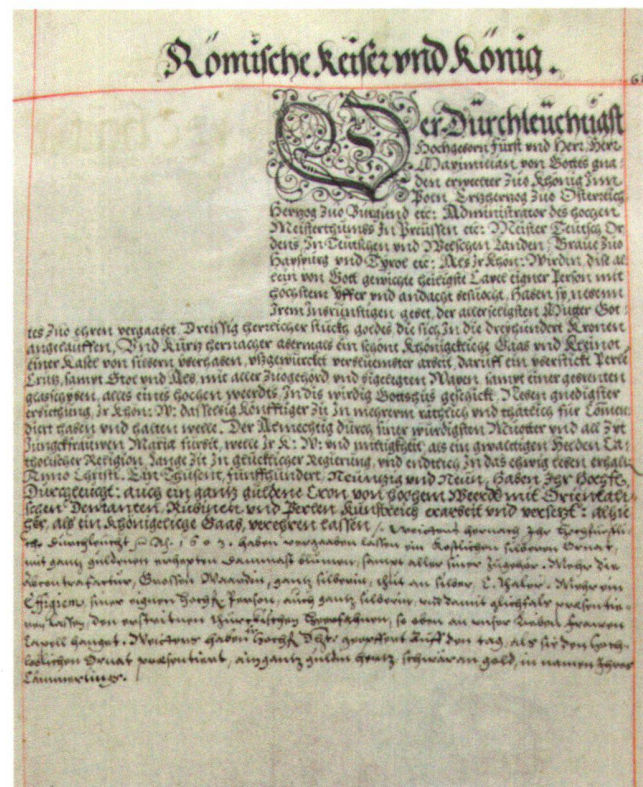 Römische Keiser vnd König.
Der Dürchleüchtigst
Hochgeborn Fürst vnd Herr Herr
Maximilian von Gottes gna-
den erwelter zuo Khönig Inn
Poln Ertzhertzog zuo Österreich
Hertzog zuo Burgund etc: Administrator des hochen
Meisterthumbs In Preüssen etc: Meister Teutsch Or-
dens, In Teütschen vnd Welschen Landen, Graue zuo
Hapspurg vnd Tyrol etc: Als Ir Khön: Wirden, dise al-
lein von Gott gewichte heiligste Capel eigner Person mit
höchstem yffer vnd andacht besuocht, Haben sy nebent
Irem Inbrünstigen gebet, der allerseligisten Muoter Got-
tes zuo ehren vergaabet Dreissig herrlicher stückh goldes die sich In die dreyhundert Kronen
angelauffen, Vnd Kurtz hernacher abermals ein schöne Khönigkliche Gaab vnd Kleinot
einer Kasel von silbern vberhaben, vßgewürckt verbluembter arbeit, daruff ein gestickt Perle
Crütz, sampt Stol vnd Als, mit aller zuogehörd vnd
alles eines hochen weerdts, In dis wirdig Gottshus geschickt, Neben gnedigster
Ir Khön: W: dasselbig künfftiger Zit In mehrerm räthlich vnd thätlich für Comen-
diert haben vnd halten welle. Der Allmechtig durch siner würdigsten Muotter vnd all Zyt
Jungkfrauwen Maria fürbit, welle Ir K: W: als ein gwaltigen Helden Ca-
tholischer Religion, lange Zit In glücklicher Regierung, vnd endtlich In das ehwig leben erhalten
Anno Christi. Ein Thusent, fünffhundert, Neüntzig vnd Neün, Haben Ihr Hochfr:
Dürchleücht: auch ein gantz güldene Cron von hochem Weerdt mit Orientali-
schen Demanten, Rubinen vnd Perlen Künstreich erarbeit vnd versetzt: alhie-
her, als ein Khönigkliche Gaab, verehren lassen. hernach Ihr
Durchleucht Aº. 1603. haben vergaaben lassen ein Kostlichen silberen Ornat,
mit gantz guldenen Dammast blumen, sampt aller siner Zugehör. Mehr die
gantz silberin, an silber
Effigiem, siner eignen Hochfr: Person, auch gantz silberin, vnd damit glichfals praesentie-
ren lassen, den so oben an vnser Lieben Frauwen
Capell hanget. haben den tag, als sie den Hoch-
Ornat praesentiert, ein gantz gulden schwär an gold, in namen Ihres
Cämmerlings.